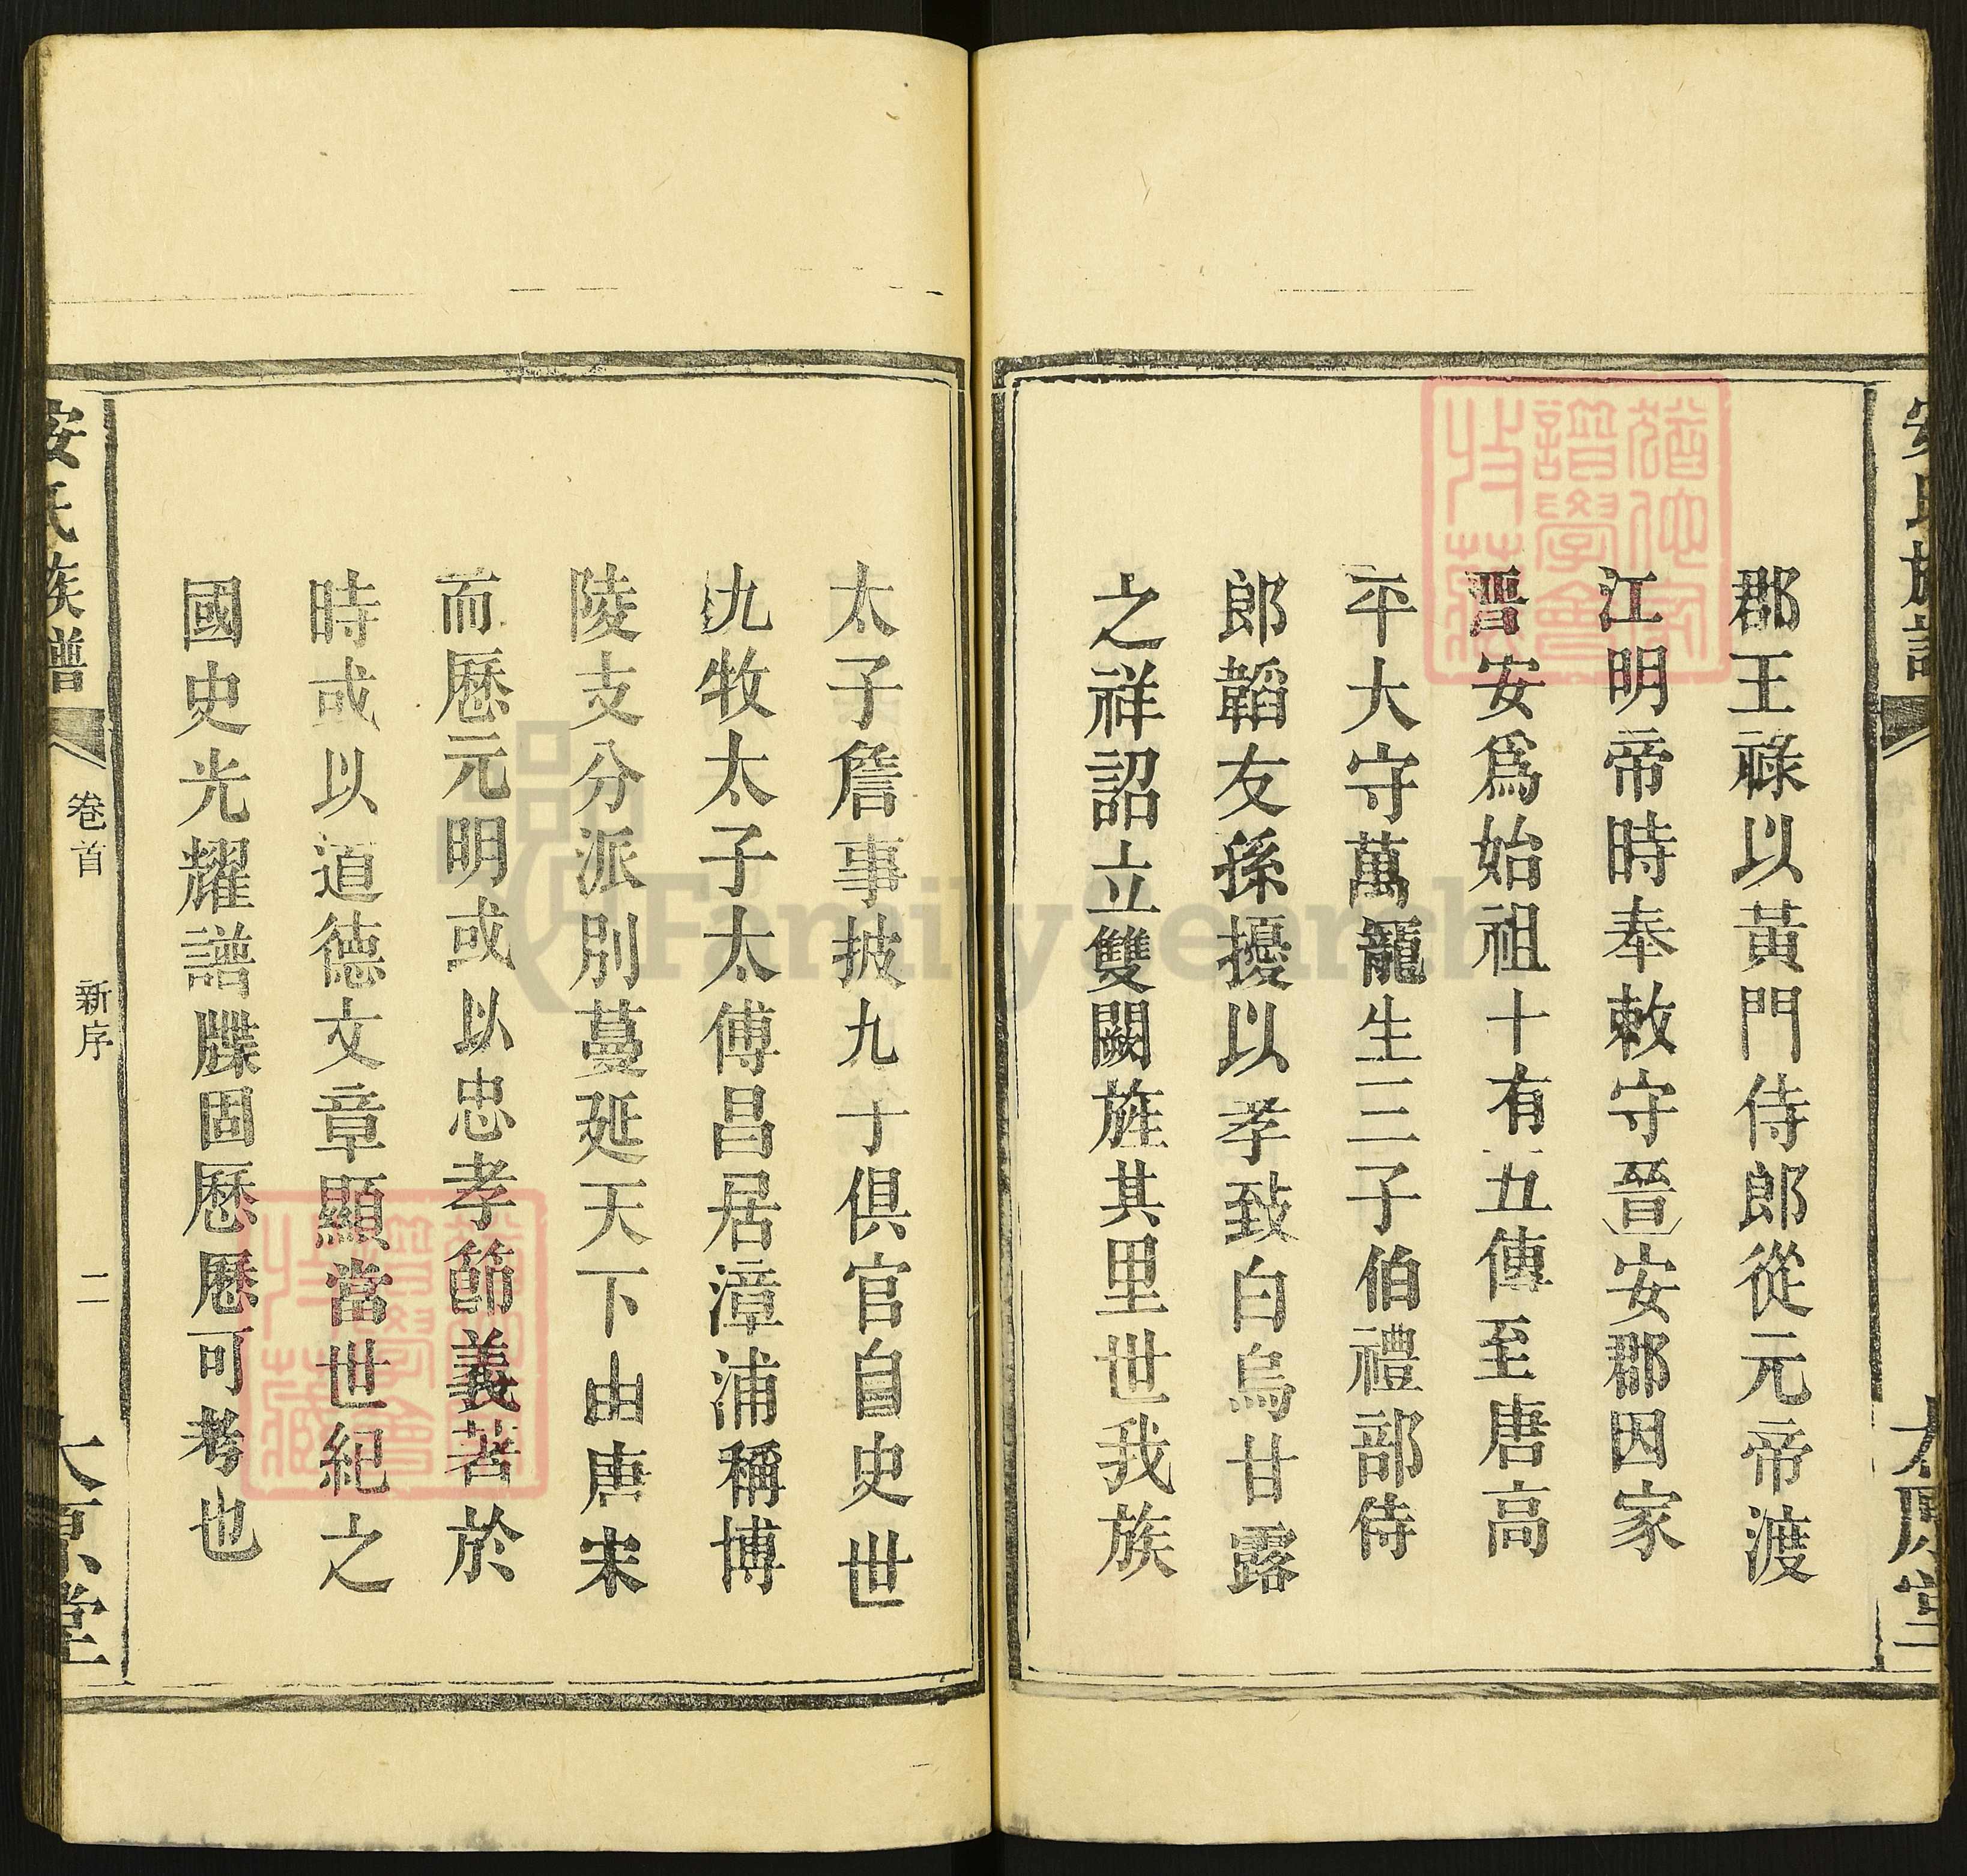 郡王祿以黃門侍郎從元帝渡
江明帝時奉敕守晉安郡因家
晉安爲始祖十有五傳至唐高
平大守萬寵生三子伯禮部侍
郎韜友孫擾以孝致白烏甘露
之祥詔立雙闕旌其里世我族
太子詹事披九子俱官自史世
九牧太子太傅昌居漳浦稱博
陵支分派別蔓延天下由唐宋
而歷元明或以忠孝節義著於
時或以道德文章顯當世紀之
國史光耀譜牒固歷歷可考也
安氏族譜
卷首
新序
二
太原堂
FamilySearch